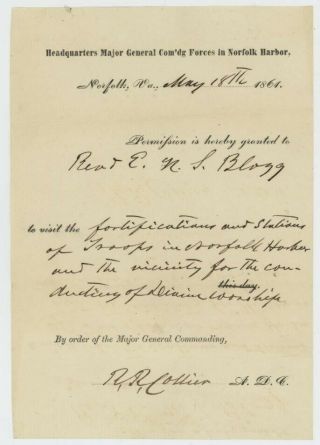 Headquarters Major General Com'dg Forces in Norfolk Harbor,
Norfolk, Va., May 18th 1861.
Permission is hereby granted to
Revd E. N. S. Blogg
to visit the fortifications and Stations
of Troops in Norfolk Harbor
and the vicinity for the con-
ducting of Divine this day. worship
By order of the Major General Commanding,
R. R. Collier A. D. C.